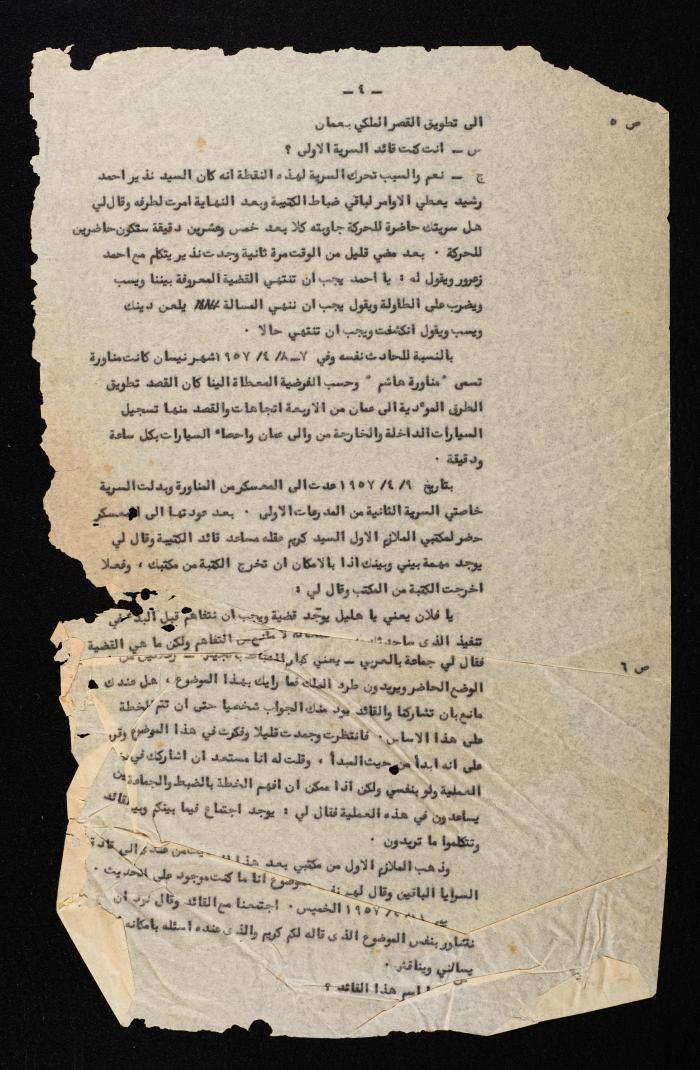 ـ ٤ ـ
ص ٥
الى تطويق القصر الملكي بعمان
س ـ انت كنت قائد السرية الاولى ؟
ج ـ نعم والسبب تحرك السرية لهذه النقطة انه كان السيد نذير احمد
رشيد يعطي الاوامر لباقي ضباط الكتيبة وبعد النهاية امرت لطرفه وقال لي
هل سريتك حاضرة للحركة جاوبته كلا بعد خمس وعشرين دقيقة ستكون حاضرين
للحركة ٠ بعد مضي قليل من الوقت مرة ثانية وجدت نذير يتكلم مع احمد
زعرور ويقول له : يا احمد يجب ان تنتهي القضية المعروفة بيننا ويسب
ويضرب على الطاولة ويقول يجب ان ننهي المسالة يلعن دينك
ويسب ويقول انكشفت ويجب ان تنتهي حالا ٠
بالنسبة للحادث نفسه وفي ٧ـ٨/ ٤/ ١٩٥٧ شهر نيسان كانت مناورة
تسمى " مناورة هاشم " وحسب الفرضية المعطاة الينا كان القصد تطويق
الطرق الموءدية الى عمان من الاربعة اتجاهات والقصد منها تسجيل
السيارات الداخلة والخارجة من والى عمان واحصاء السيارات بكل ساعة
ودقيقة ٠
بتاريخ ٩/ ٤/ ١٩٥٧ عدت الى المعسكر من المناورة وبدلت السرية
خاصتي السرية الثانية من المدرعات الاولى ٠ بعد عودتها الى المعسكر
حضر لمكتبي الملازم الاول السيد كريم عقله مساعد قائد الكتيبة وقال لي
يوجد مهمة بيني وبينك اذا بالامكان ان تخرج الكتبة من مكتبك ، وفعلا
اخرجت الكتبة من المكتب وقال لي :
يا فلان يعني يا هليل يوجد قضية ويجب ان نتفاهم قبل البدء في
تنفيذ الذي لا مانع من التفاهم ولكن ما هي القضية
ص ٦
فقال لي جماعة بالعربي ـ يعني كبار الضباط بالجيش ـ
الوضع الحاضر ويريدون طرد الملك فما رايك بهذا الموضوع ، هل عندك
مانع بان تشاركنا والقائد يود منك الجواب شخصيا حتى ان تتم الخطة
على هذا الاساس ٠ فانتظرت وجمدت قليلا وفكرت في هذا الموضوع
على انه ابدأ من حيث المبدأ ، وقلت له انا مستعد ان اشاركك في
العملية ولو بنفسي ولكن اذا ممكن ان افهم الخطة بالضبط والجماعة
يساعدون في هذه العملية فقال لي : يوجد اجتماع فيما بينكم وبين القائد
وتتكلموا ما تريدون ٠
وذهب الملازم الاول من مكتبي بعد هذا من عندي الى قادة
السرايا الباقين وقال لهم نفس الموضوع انا ما كنت موجود على الحديث ٠
يوم ١٩٥٧ الخميس ٠ اجتمعنا مع القائد وقال نود ان
نتشاور بنفس الموضوع الذي قاله لكم كريم والذي عنده اسئله بامكانه
يسالني ويناقش ٠
اسم هذا القائد ؟